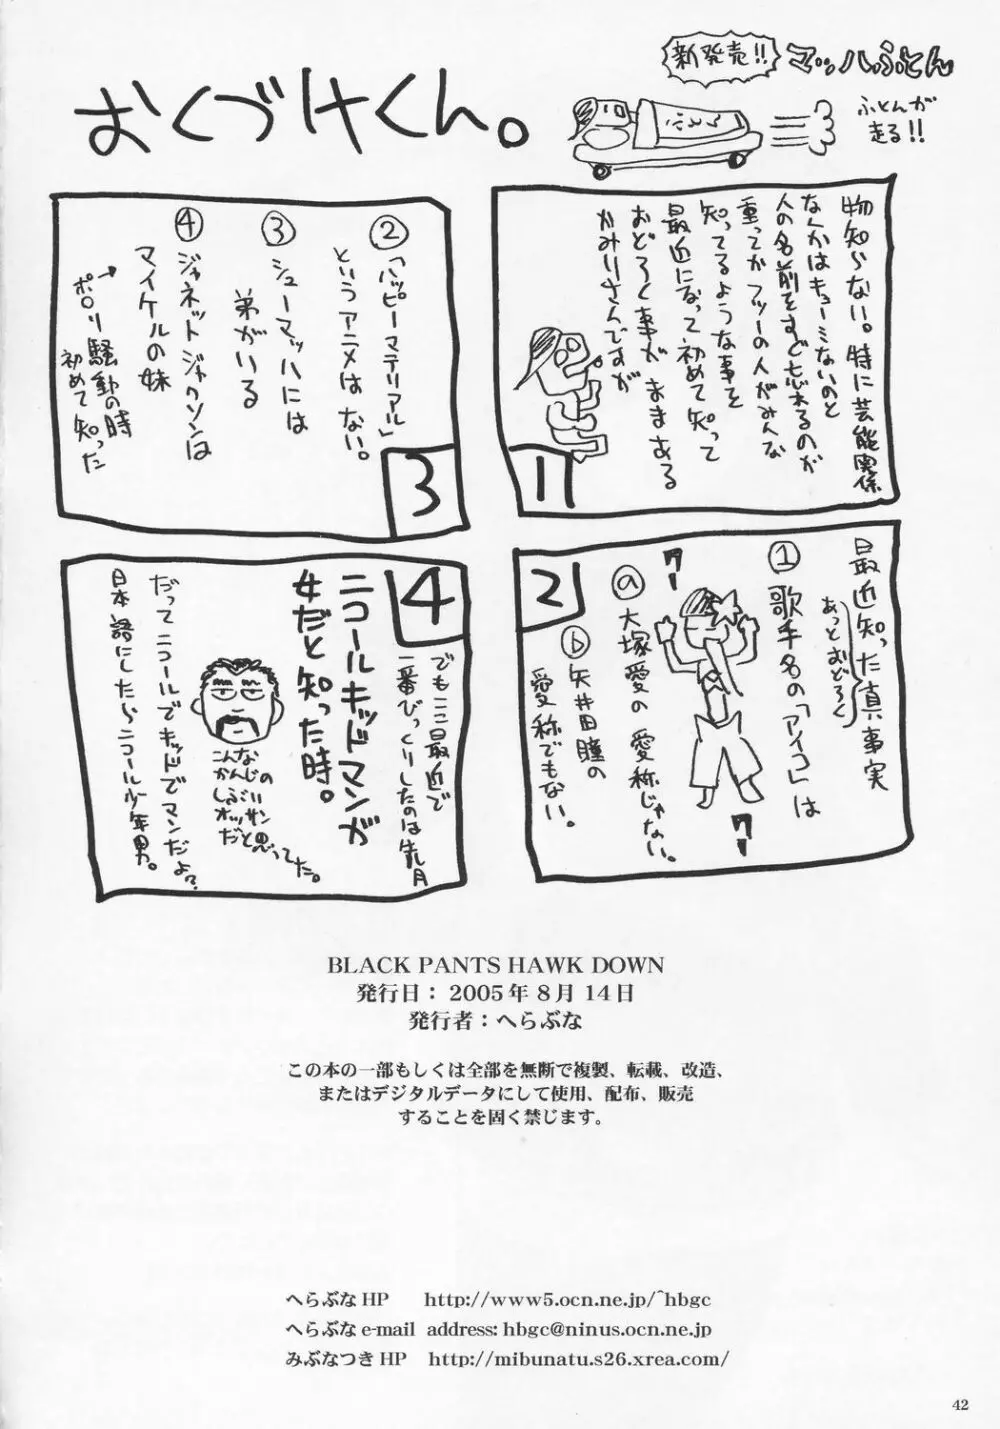 おくづけくん。
新発売!!
マッハふとん
ふとんが
走る!!
ふとん
物知らない。特に芸能関係
なんかはキョーミないのと
人の名前をすぐ忘れるのが
重ってかフツーの人がみんな
知ってるような事を
最近になって初めて知って
おどろく事がままある
かみりさんですが
1
最近知った真事実
あっとおどろく
①歌手名の「アイコ」は
ⓐ大塚愛の愛称じゃない。
ⓑ矢井田瞳の
愛称でもない。
クー
クー
2
②「ハッピーマテリアル」
というアニメはない。
③シューマッハには
弟がいる
④ジャネットジャクソンは
マイケルの妹
→ポロリ騒動の時
初めて知った
3
でもここ最近で
一番びっくりしたのは先月
ニコールキッドマンが
女だと知った時。
こんな
かんじの
しぶい
オッサン
だと思ってた。
だってニコールでキッドでマンだよ?
日本語にしたらニコール少年男。
4
BLACK PANTS HAWK DOWN
発行日：2005年8月14日
発行者：へらぶな
この本の一部もしくは全部を無断で複製、転載、改造、
またはデジタルデータにして使用、配布、販売
することを固く禁じます。
へらぶなHP http://www5.ocn.ne.jp/~hbgc
へらぶなe-mail address:hbgc@ninus.ocn.ne.jp
みぶなつきHP http://mibunatu.s26.xrea.com/
42